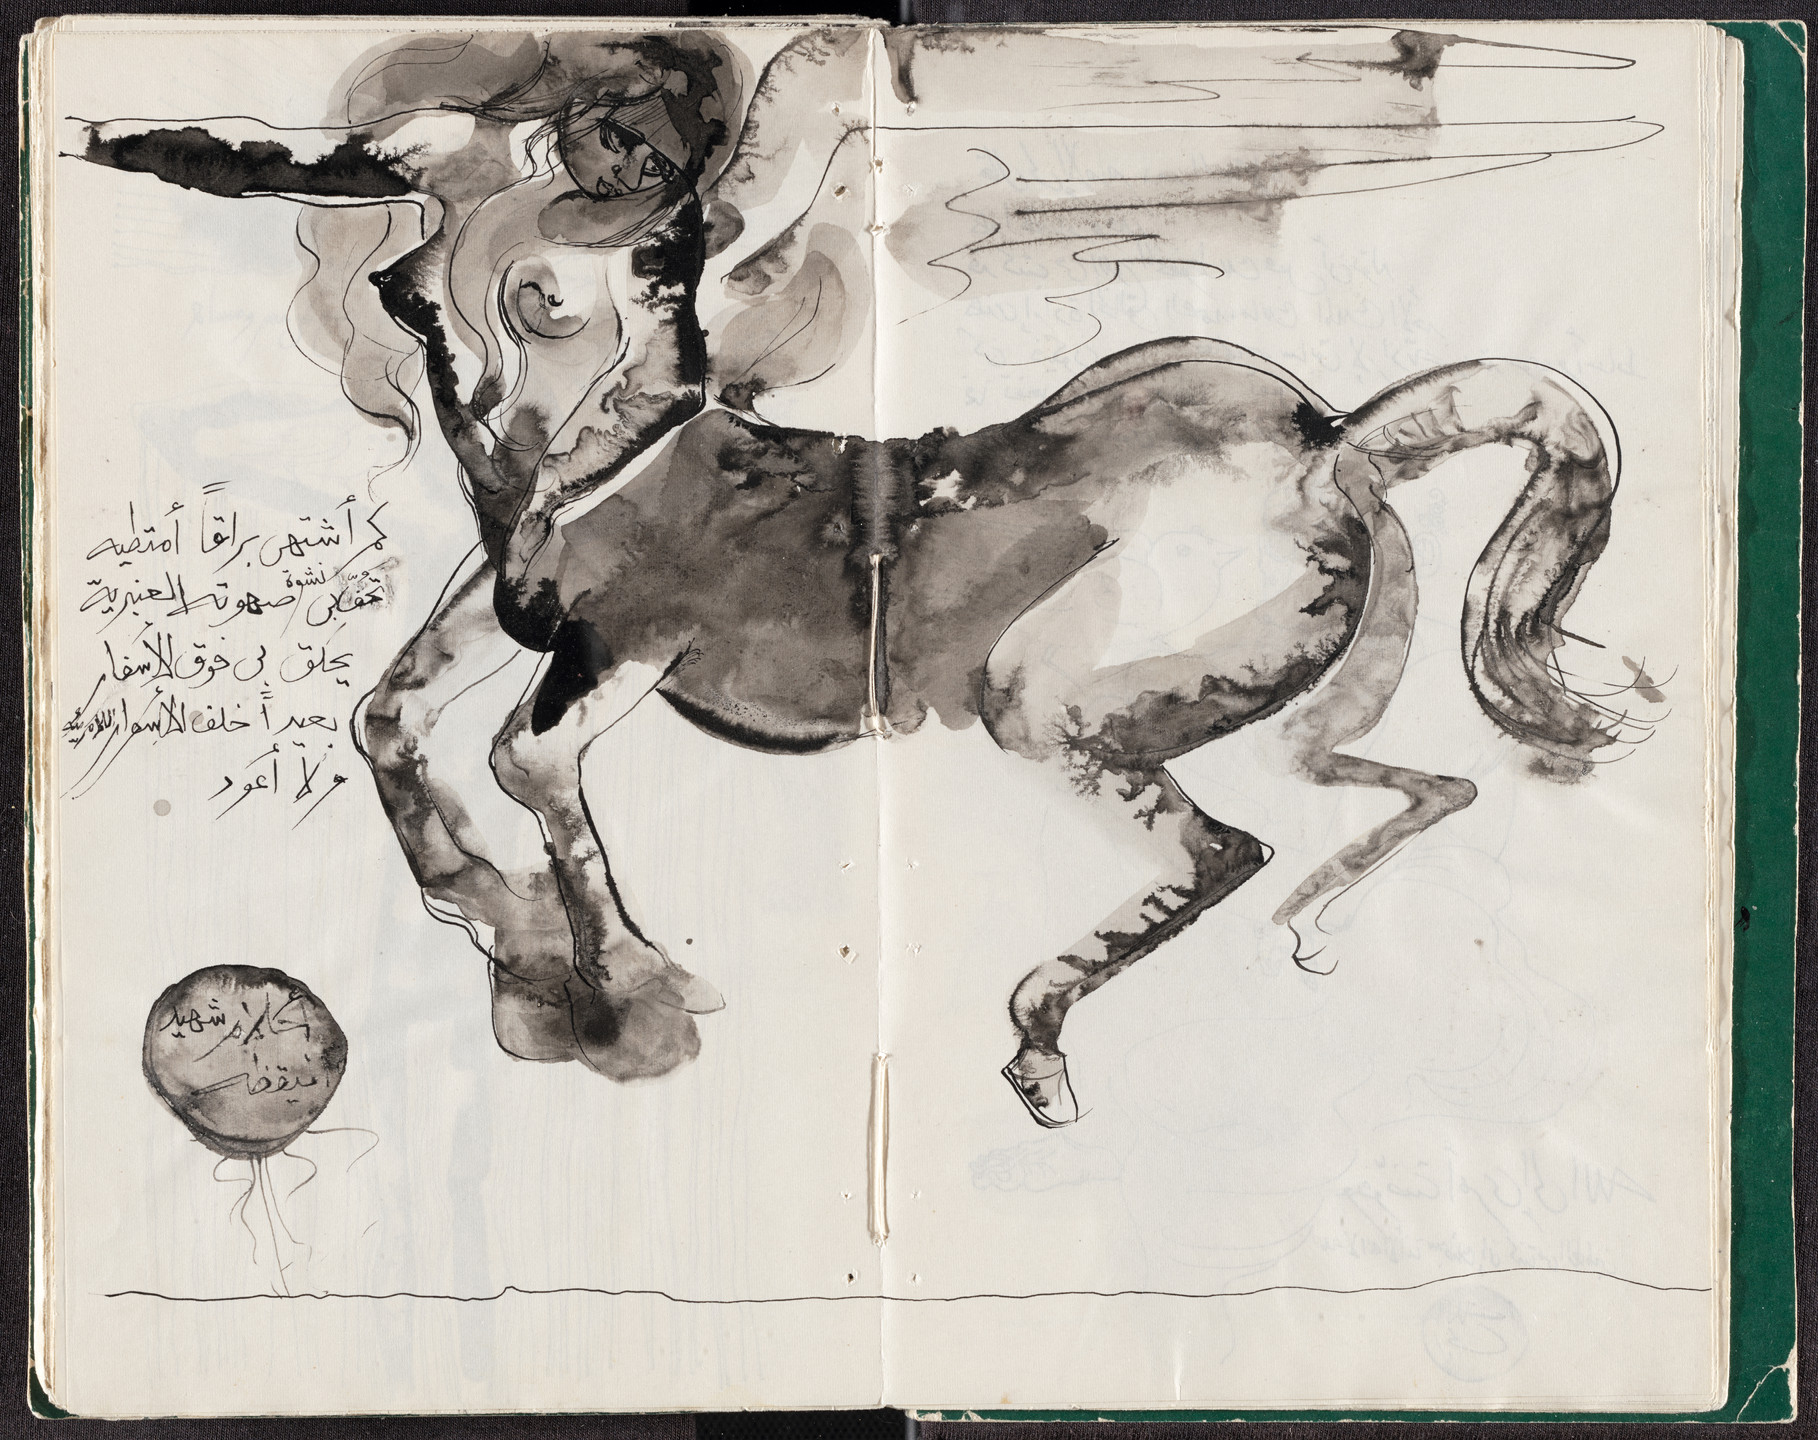 كم أشتهي براقاً أمتطيه
تحفّ بي نشوة صهوته العنبرية
يحلق بي فوق الأسفار
بعيداً خلف الأسوار اللامرئية
ولا أعود
أحلام شهيد